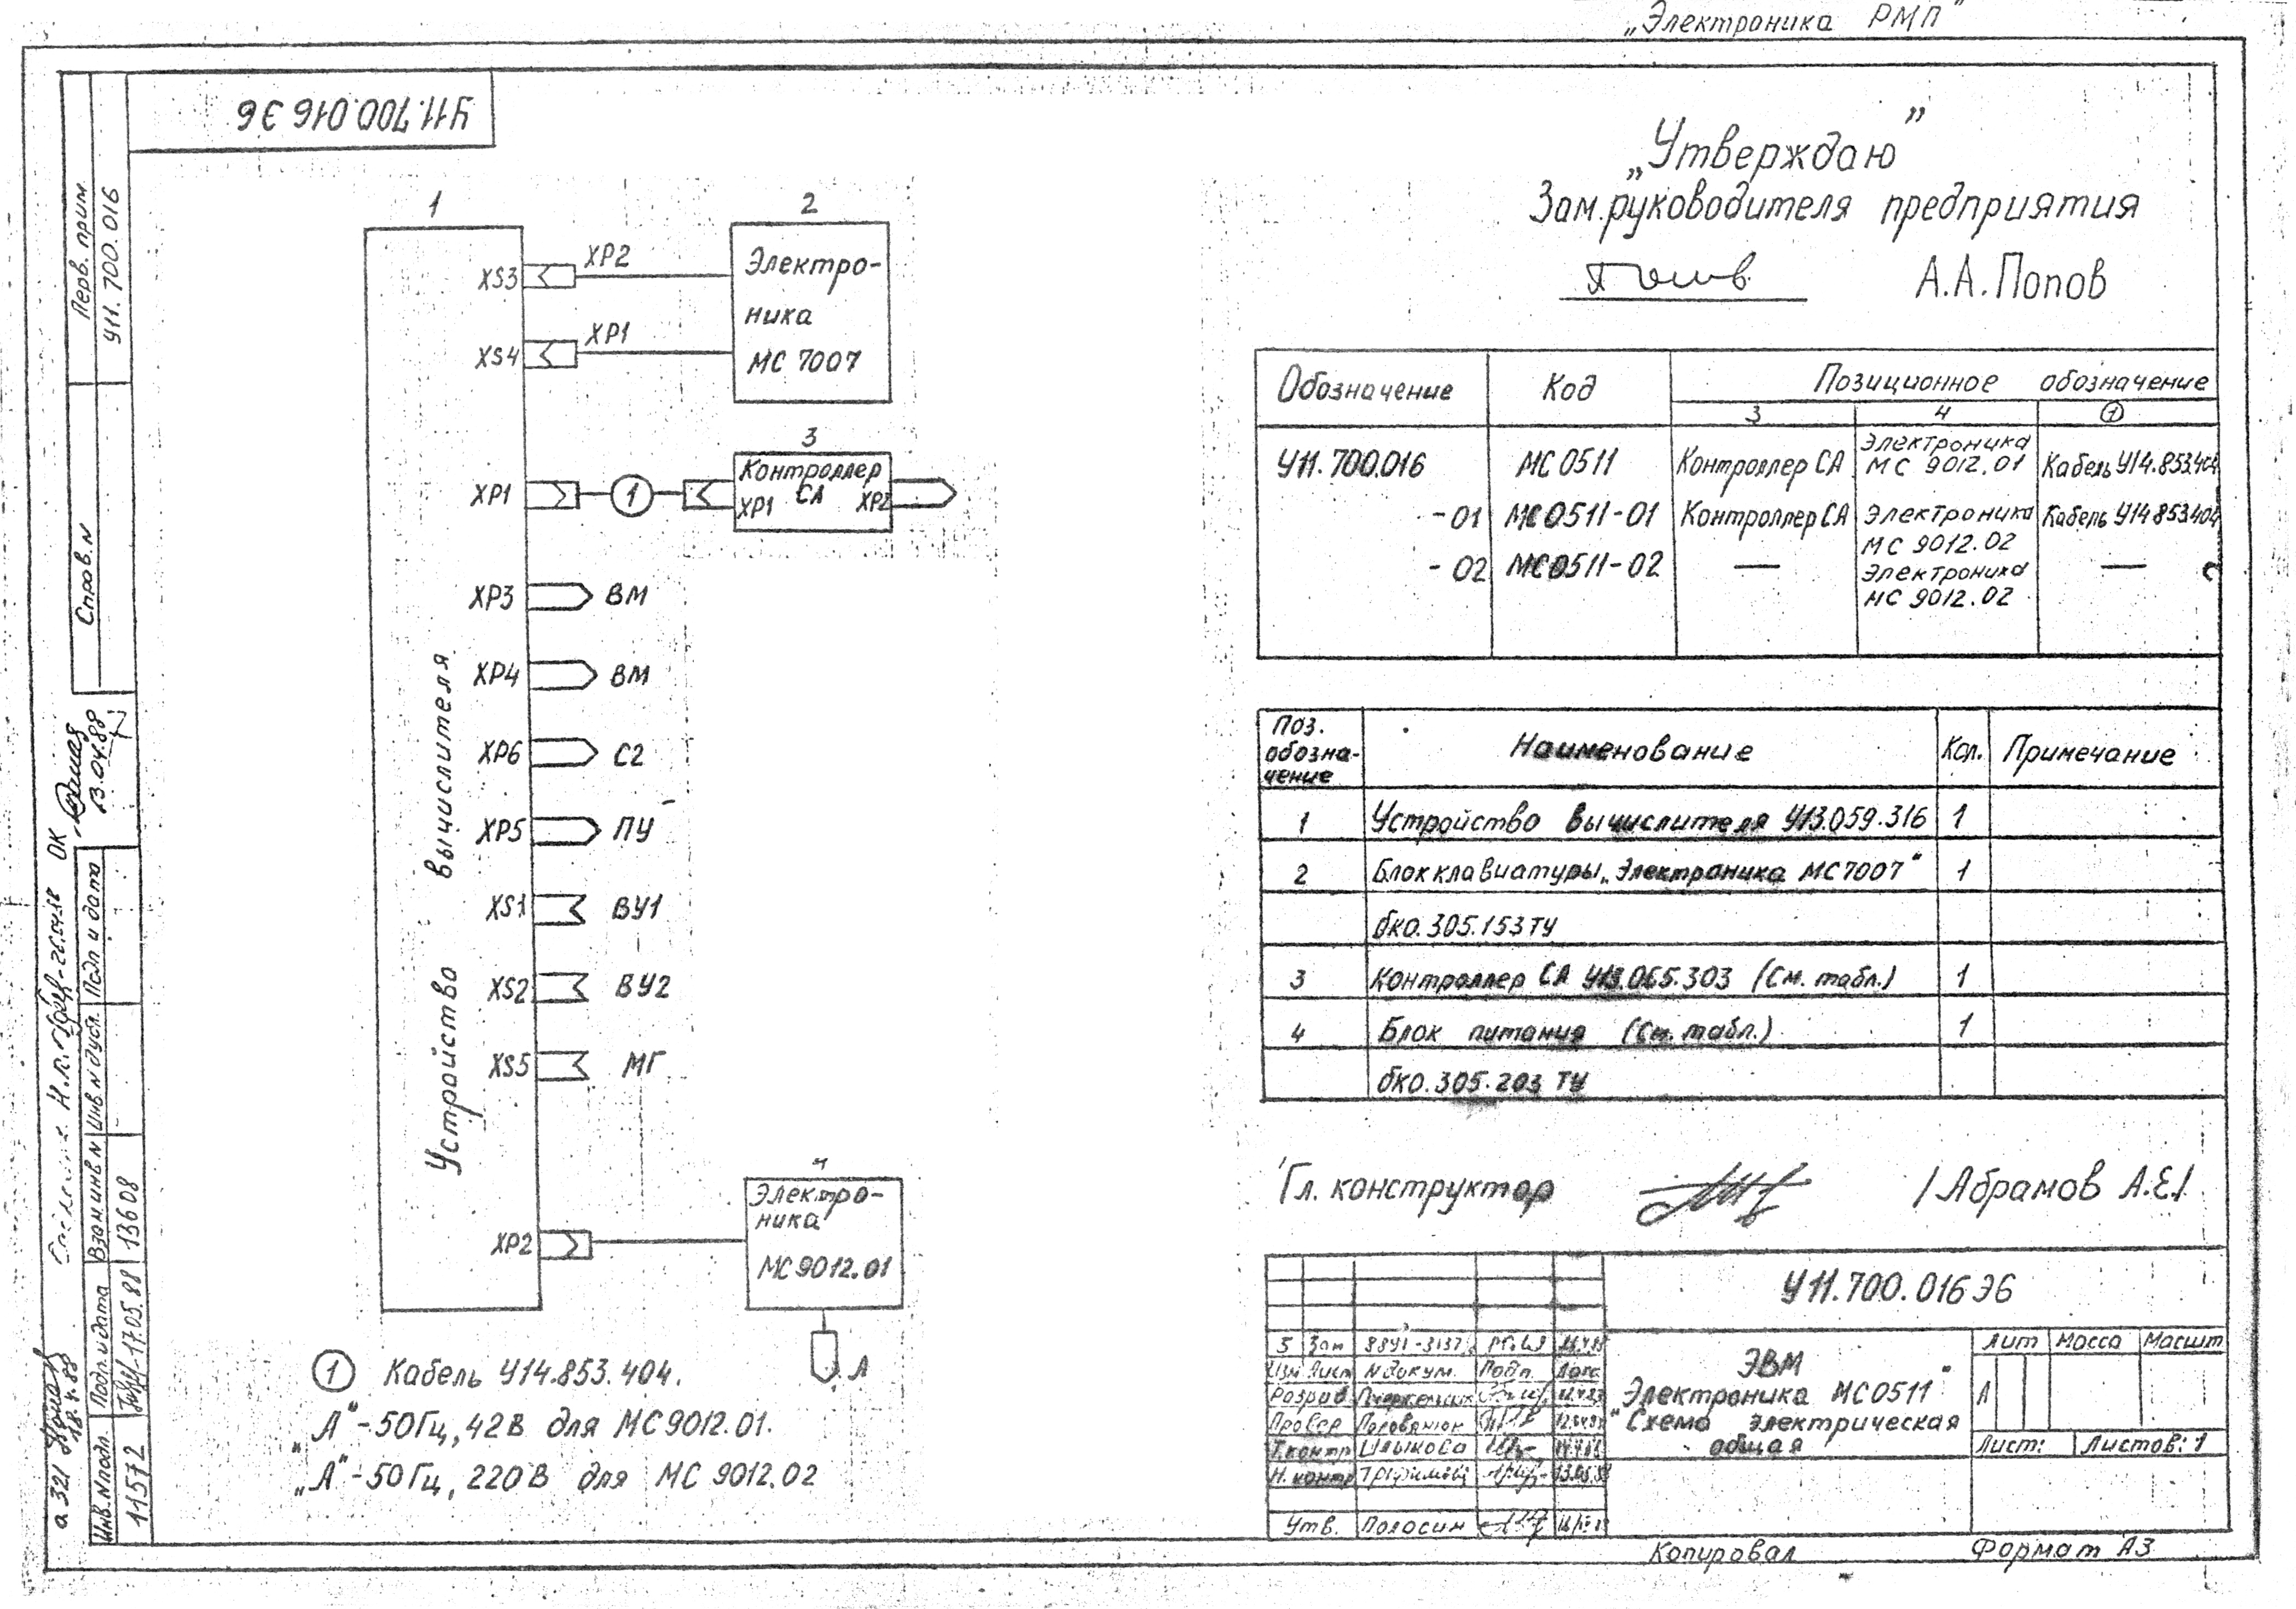 „Электроника РМП"
У11.700.016 Э6
Перв. прим.
У11.700.016
Справ. N
„Утверждаю"
Зам. руководителя предприятия
А.А. Попов
1
XS3
XP2
XS4
XP1
2
Электро-
ника
МС 7007
XP1
1
3
Контроллер
СА
XP1
XP2
XP3 ВМ
XP4 ВМ
XP6 С2
XP5 ПУ
XS1 ВУ1
XS2 ВУ2
XS5 МГ
XP2
Устройство вычислителя
Электро-
ника
МС 9012.01
А
1 Кабель У14.853.404.
„А"-50Гц, 42В для МС9012.01.
„А"-50Гц, 220В для МС 9012.02
Обозначение Код Позиционное обозначение
3 4 1
У11.700.016 МС 0511 Контроллер СА Электроника МС 9012.01 Кабель У14.853.404
-01 МС0511-01 Контроллер СА Электроника МС 9012.02 Кабель У14.853.404
-02 МС0511-02 — Электроника МС 9012.02 —
Поз. обозна-чение Наименование Кол. Примечание
1 Устройство вычислителя У13.059.316 1
2 Блок клавиатуры „Электроника МС7007" 1
бк0.305.153ТУ
3 Контроллер СА У13.065.303 (См. табл.) 1
4 Блок питания (См. табл.) 1
бк0.305.203 ТУ
Гл. конструктор /Абрамов А.Е./
У11.700.016Э6
5 Зам
Изм Лист N докум. Подп. Дата
Разраб
Провер
Т.контр
Н.контр
Утв. Полосин
ЭВМ
„Электроника МС0511"
Схема электрическая
общая
Лит Масса Масшт
А
Лист: Листов: 1
Копировал
Формат А3
ОК
13.04.88
Подп и дата
Инв N дубл.
Взам инв N 13608
Подп. и дата 17.05.88
Инв. N подл. 11572
а 321
18.4.88